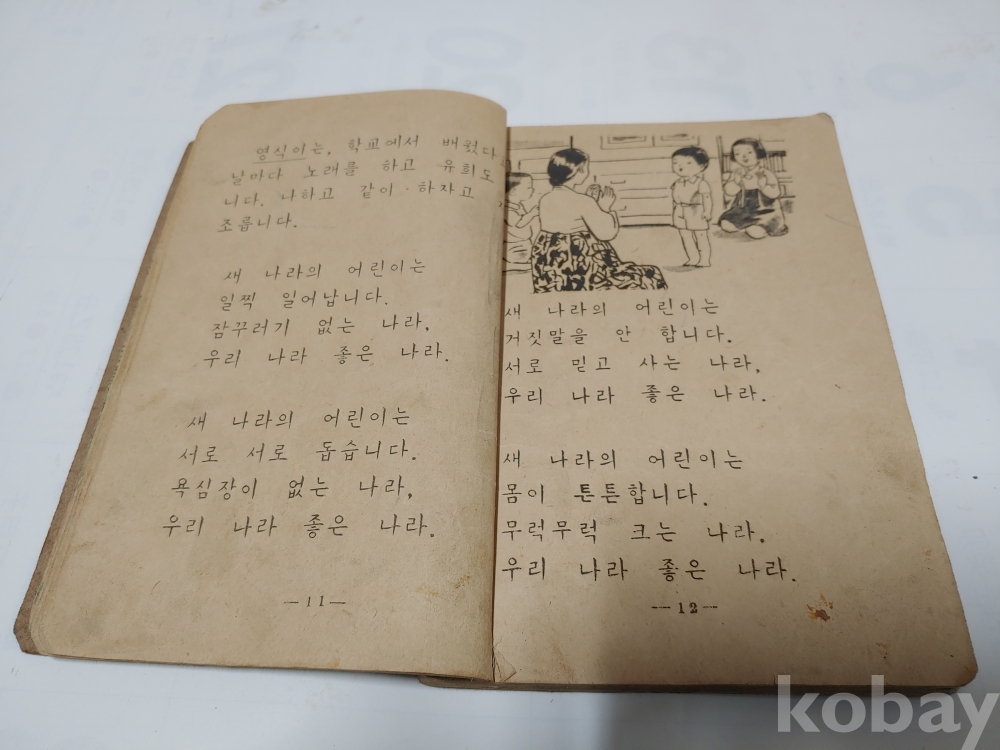 영식이는, 학교에서 배웠다
날마다 노래를 하고 유희도
니다. 나하고 같이 하자고
조릅니다.
새 나라의 어린이는
일찍 일어납니다.
잠꾸러기 없는 나라,
우리 나라 좋은 나라.
새 나라의 어린이는
서로 서로 돕습니다.
욕심장이 없는 나라,
우리 나라 좋은 나라.
—11—
새 나라의 어린이는
거짓말을 안 합니다.
서로 믿고 사는 나라,
우리 나라 좋은 나라.
새 나라의 어린이는
몸이 튼튼합니다.
무럭무럭 크는 나라,
우리 나라 좋은 나라.
—12—
kobay